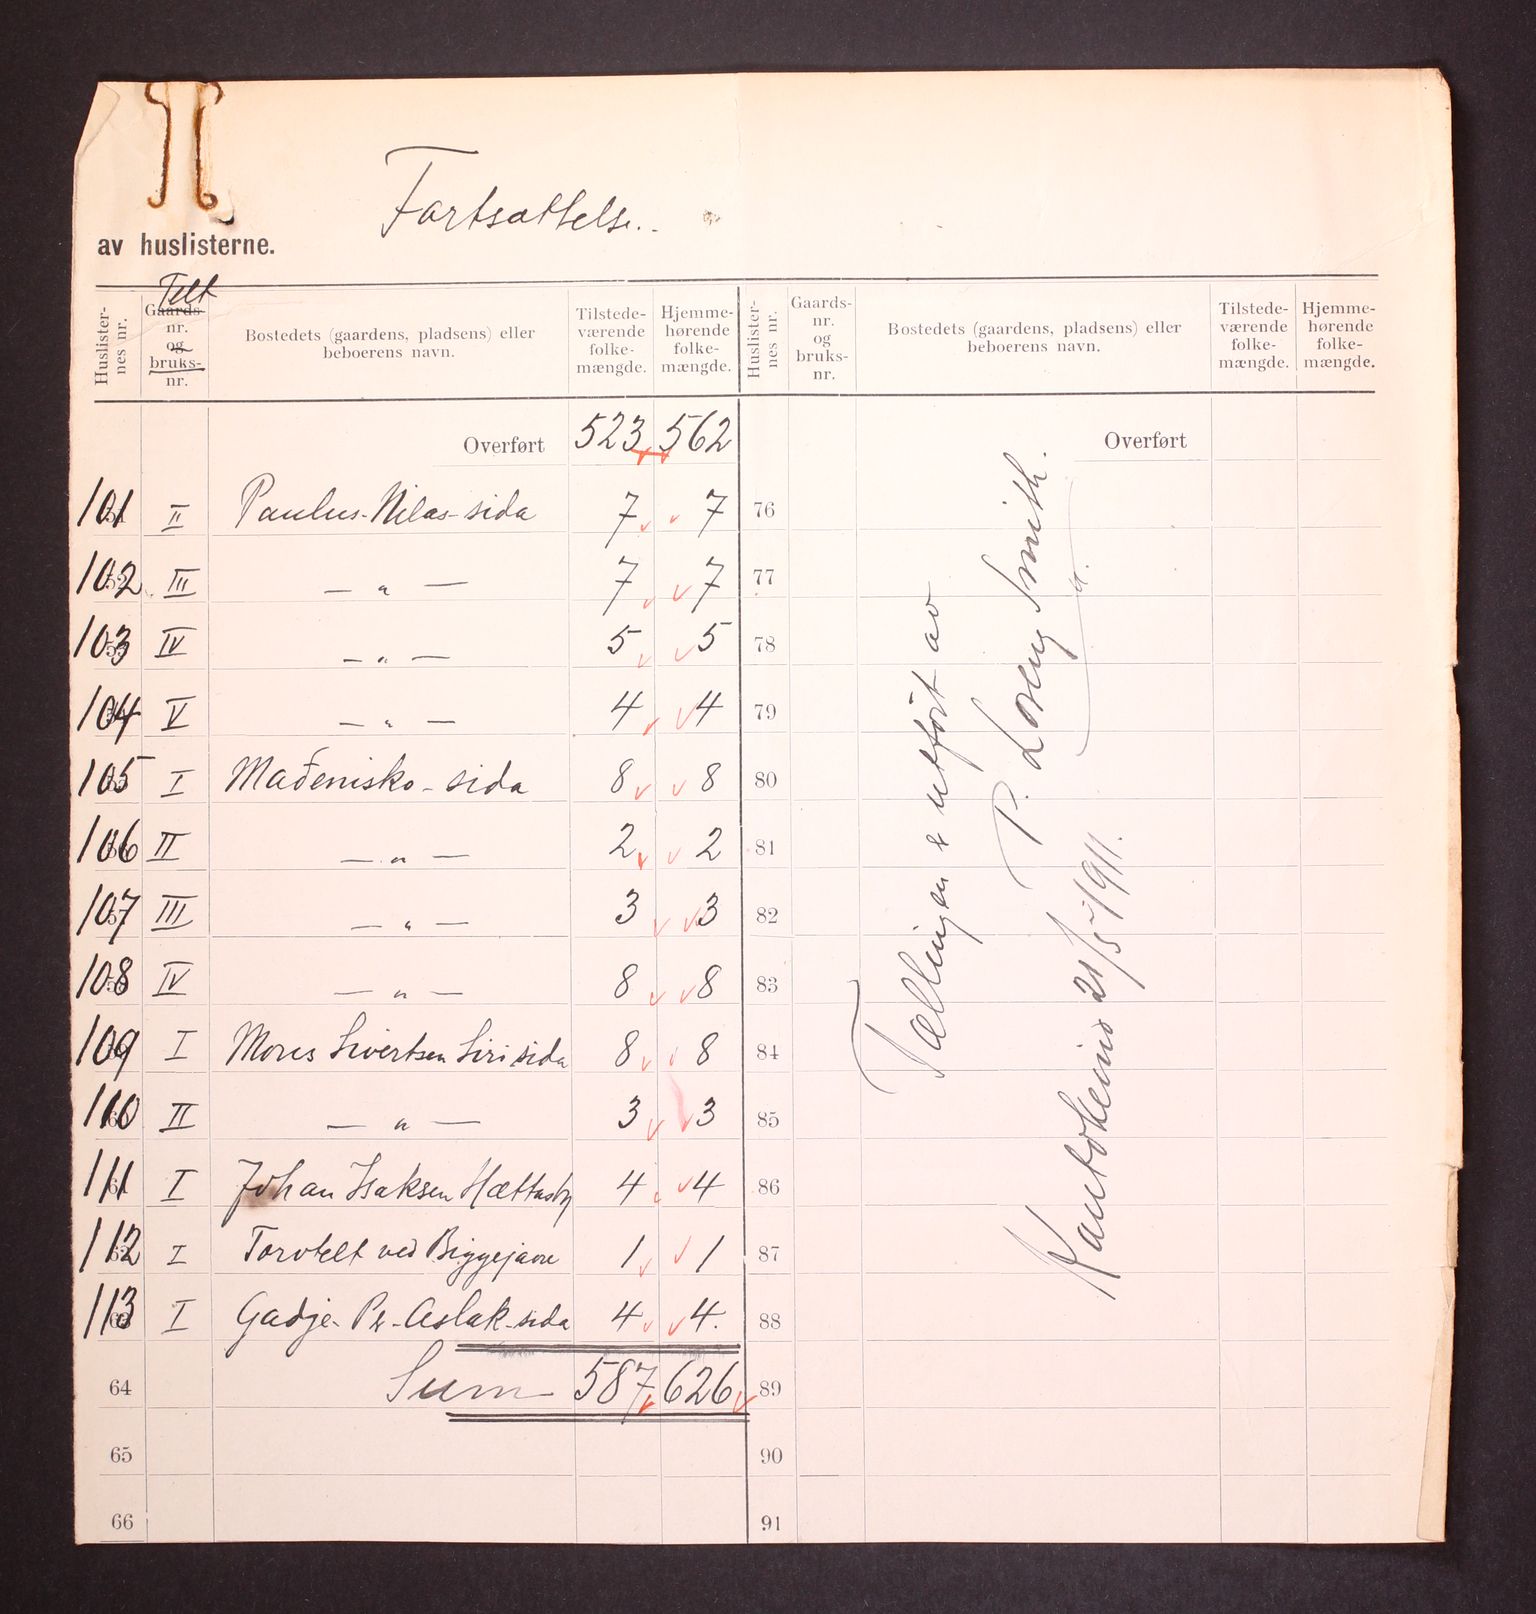 Fortsættelse..
av huslisterne.
Huslister-
nes nr.
Telt
Gaards-
nr.
og
bruks-
nr.
Bostedets (gaardens, pladsens) eller
beboerens navn.
Tilstede-
værende
folke-
mængde.
Hjemme-
hørende
folke-
mængde.
Huslister-
nes nr.
Gaards-
nr.
og
bruks-
nr.
Bostedets (gaardens, pladsens) eller
beboerens navn.
Tilstede-
værende
folke-
mængde.
Hjemme-
hørende
folke-
mængde.
Overført 523 562
Overført
101 II Paulus-Nilas-sida 7 7 76
102 III — „ — 7 7 77
103 IV — „ — 5 5 78
104 V — „ — 4 4 79
105 I Mađenisko-sida 8 8 80
106 II — „ — 2 2 81
107 III — „ — 3 3 82
108 IV — „ — 8 8 83
109 I Mons Sivertsen Siri sida 8 8 84
110 II — „ — 3 3 85
111 I Johan Isaksen Hætta 4 4 86
112 I Torvtelt ved Biggejavre 1 1 87
113 I Gadje-Per-Aslak-sida 4 4. 88
64 Sum 587 626 89
65 90
66 91
Tællingen er utført av
P. Lorenz Smith.
Kautokeino 21/5-1911.